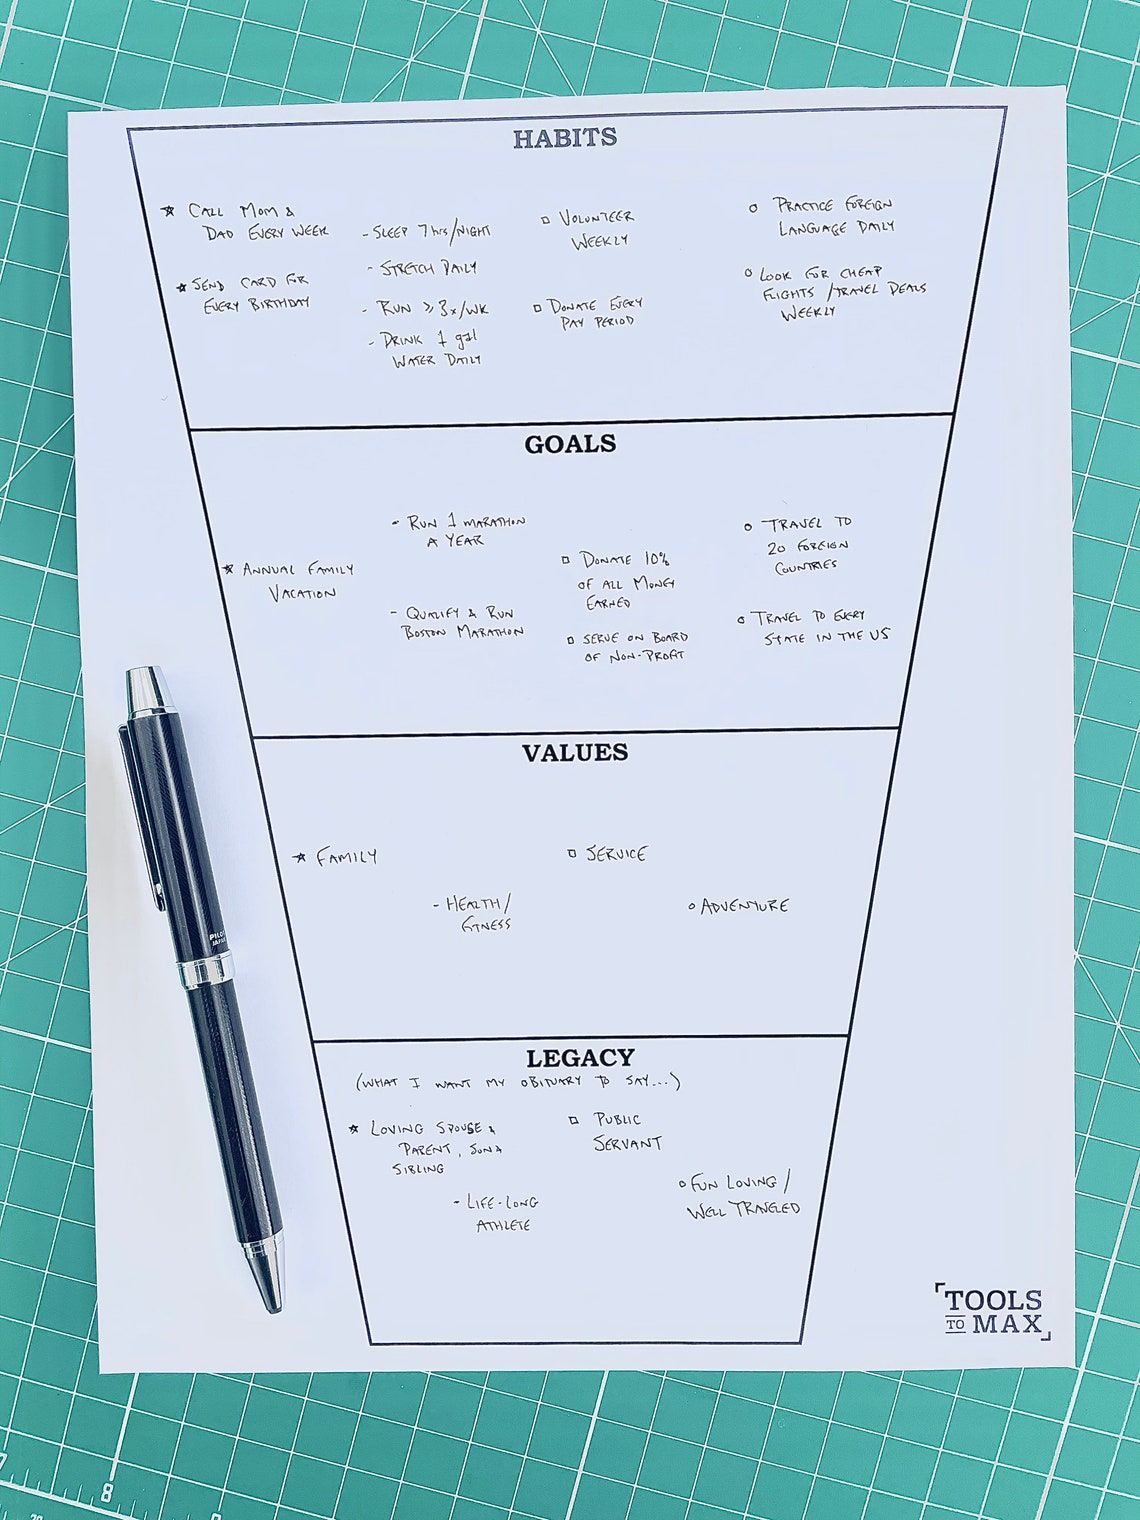 HABITS
★ CALL MOM &
DAD EVERY WEEK
★ SEND CARD FOR
EVERY BIRTHDAY
- SLEEP 7hrs/NIGHT
- STRETCH DAILY
- RUN ≥ 3x/WK
- DRINK 1 gal
WATER DAILY
□ VOLUNTEER
WEEKLY
□ DONATE EVERY
PAY PERIOD
○ PRACTICE FOREIGN
LANGUAGE DAILY
○ LOOK FOR CHEAP
FLIGHTS /TRAVEL DEALS
WEEKLY
GOALS
★ ANNUAL FAMILY
VACATION
- RUN 1 MARATHON
A YEAR
- QUALIFY & RUN
BOSTON MARATHON
□ DONATE 10%
OF ALL MONEY
EARNED
□ SERVE ON BOARD
OF NON-PROFIT
○ TRAVEL TO
20 FOREIGN
COUNTRIES
○ TRAVEL TO EVERY
STATE IN THE US
VALUES
★ FAMILY
- HEALTH/
FITNESS
□ SERVICE
○ ADVENTURE
LEGACY
(WHAT I WANT MY OBITUARY TO SAY...)
★ LOVING SPOUSE &
PARENT, SON &
SIBLING
- LIFE-LONG
ATHLETE
□ PUBLIC
SERVANT
○ FUN LOVING/
WELL TRAVELED
PILOT
JAPAN
TOOLS
TO MAX
8